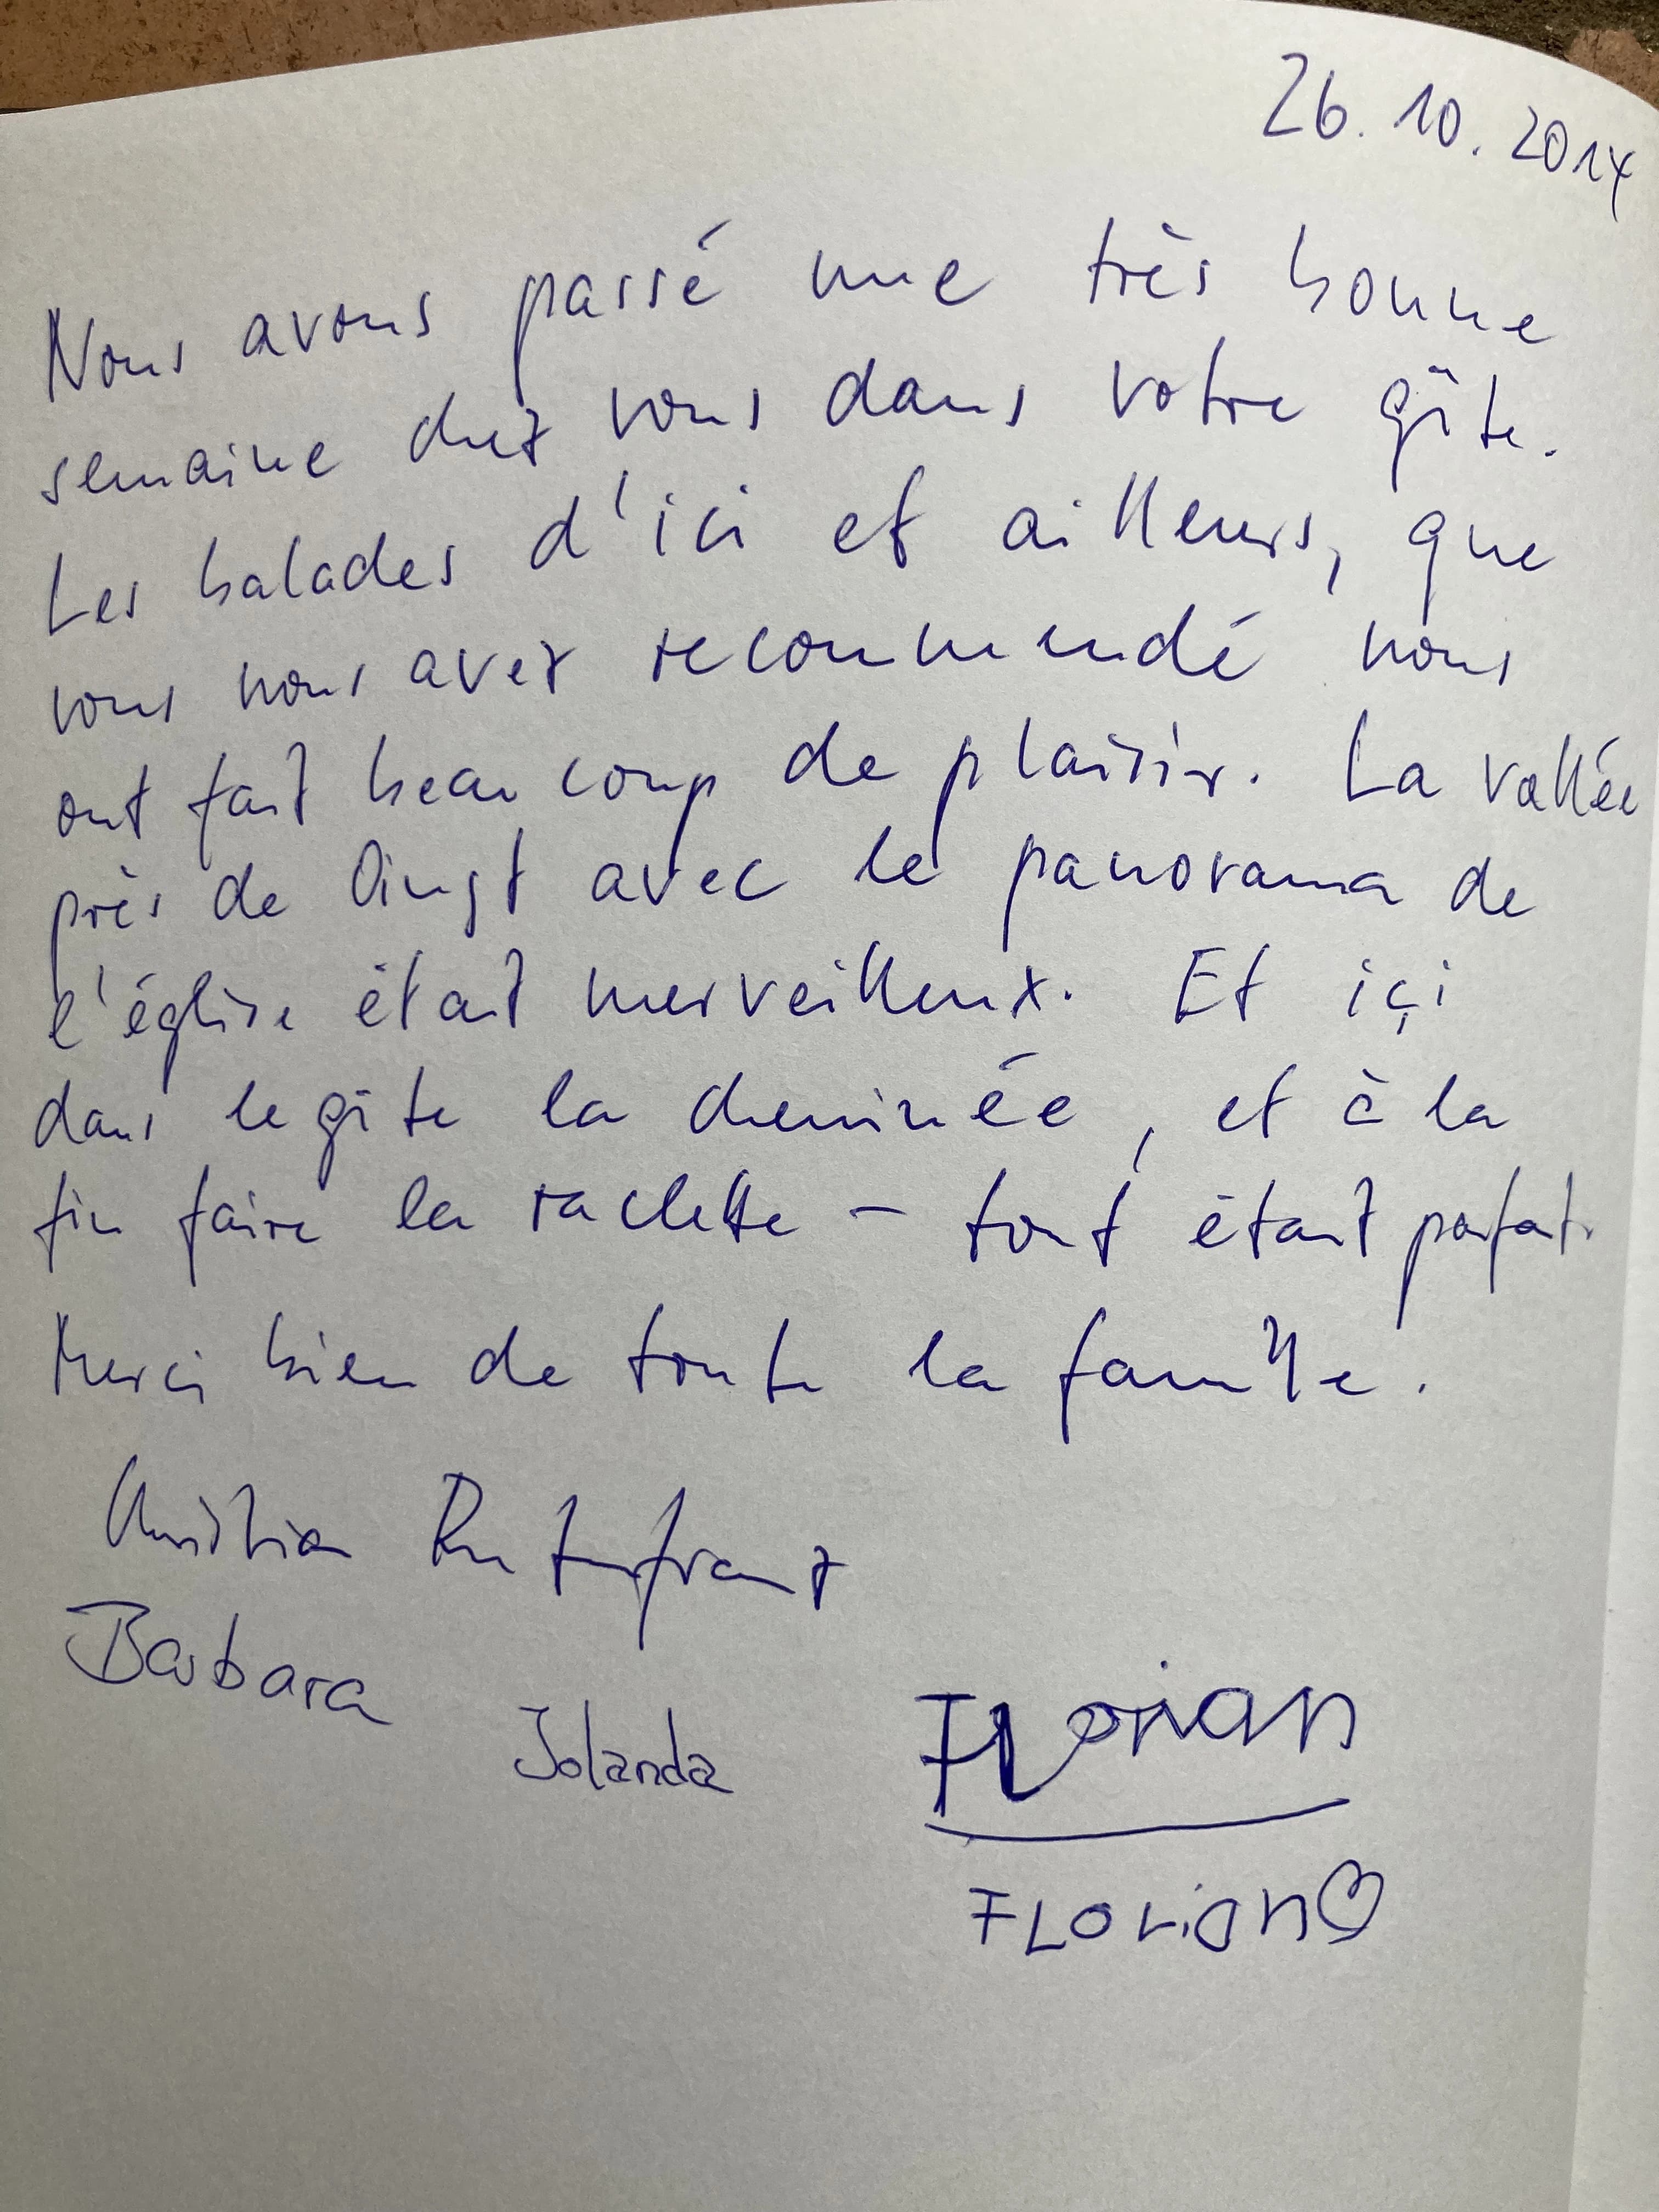 26.10.2014
Nous avons passé une très bonne
semaine chez vous dans votre gîte.
Les balades d'ici et ailleurs, que
vous nous avez recommendé nous
ont fait beaucoup de plaisir. La vallée
près de Oingt avec le panorama de
l'église était merveilleux. Et içi
dans le gîte la cheminée, et à la
fin faire la raclette – tout était parfait.
Merci bien de toute la famille.
Christian
Barbara
Jolanda
Florian
FLorian♡